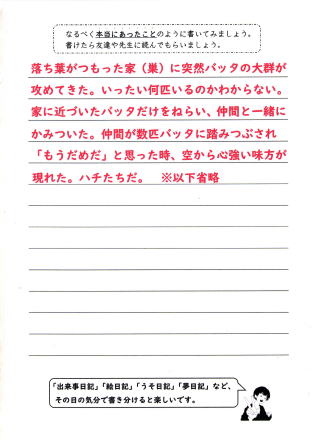 なるべく本当にあったことのように書いてみましょう。
書けたら友達や先生に読んでもらいましょう。
落ち葉がつもった家(巣)に突然バッタの大群が
攻めてきた。いったい何匹いるのかわからない。
家に近づいたバッタだけをねらい、仲間と一緒に
かみついた。仲間が数匹バッタに踏みつぶされ
「もうだめだ」と思った時、空から心強い味方が
現れた。ハチたちだ。 ※以下省略
「出来事日記」「絵日記」「うそ日記」「夢日記」など、
その日の気分で書き分けると楽しいです。